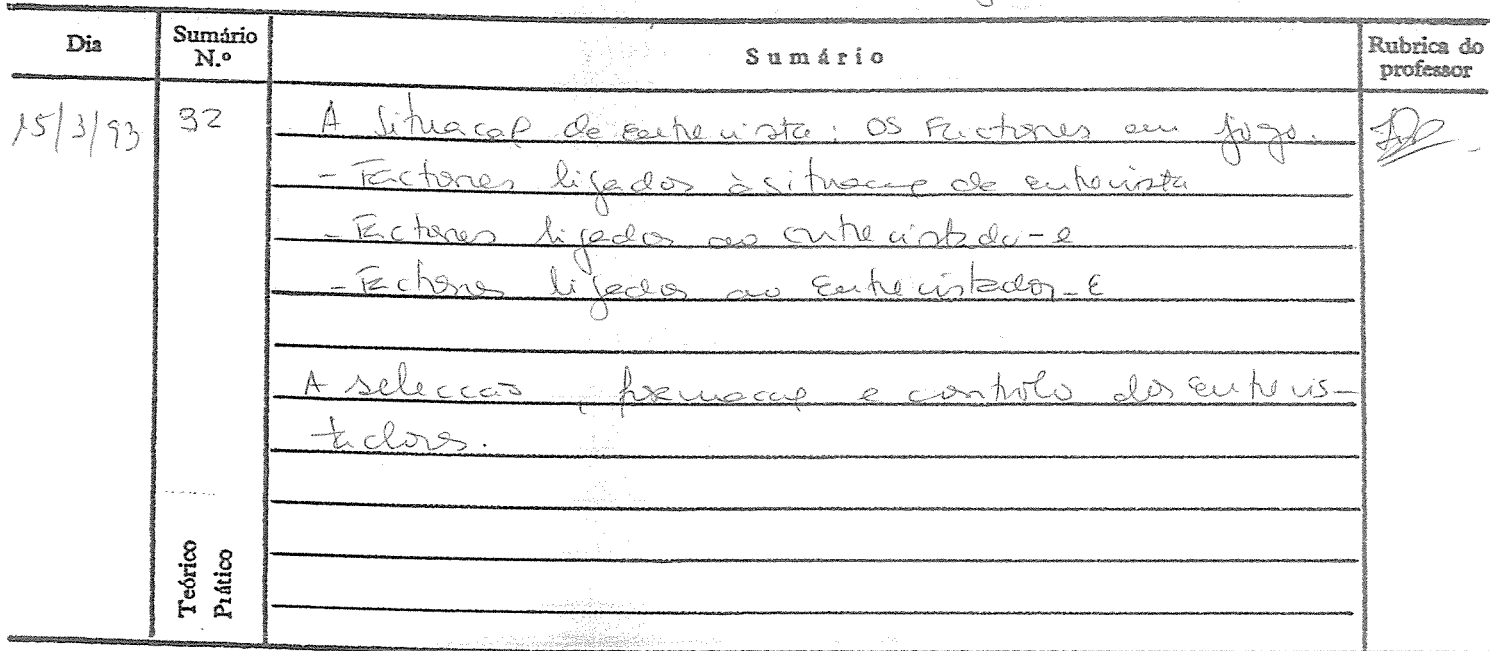 Dia
Sumário N.º
Sumário
Rubrica do professor
15/3/93
32
A situação de entrevista: os Factores em jogo.
- Factores ligados à situação de entrevista
- Factores ligados ao entrevistado-e
- Factores ligados ao Entrevistador-E
A selecção, formação e controlo dos entrevis-
tadores.
Teórico
Prático